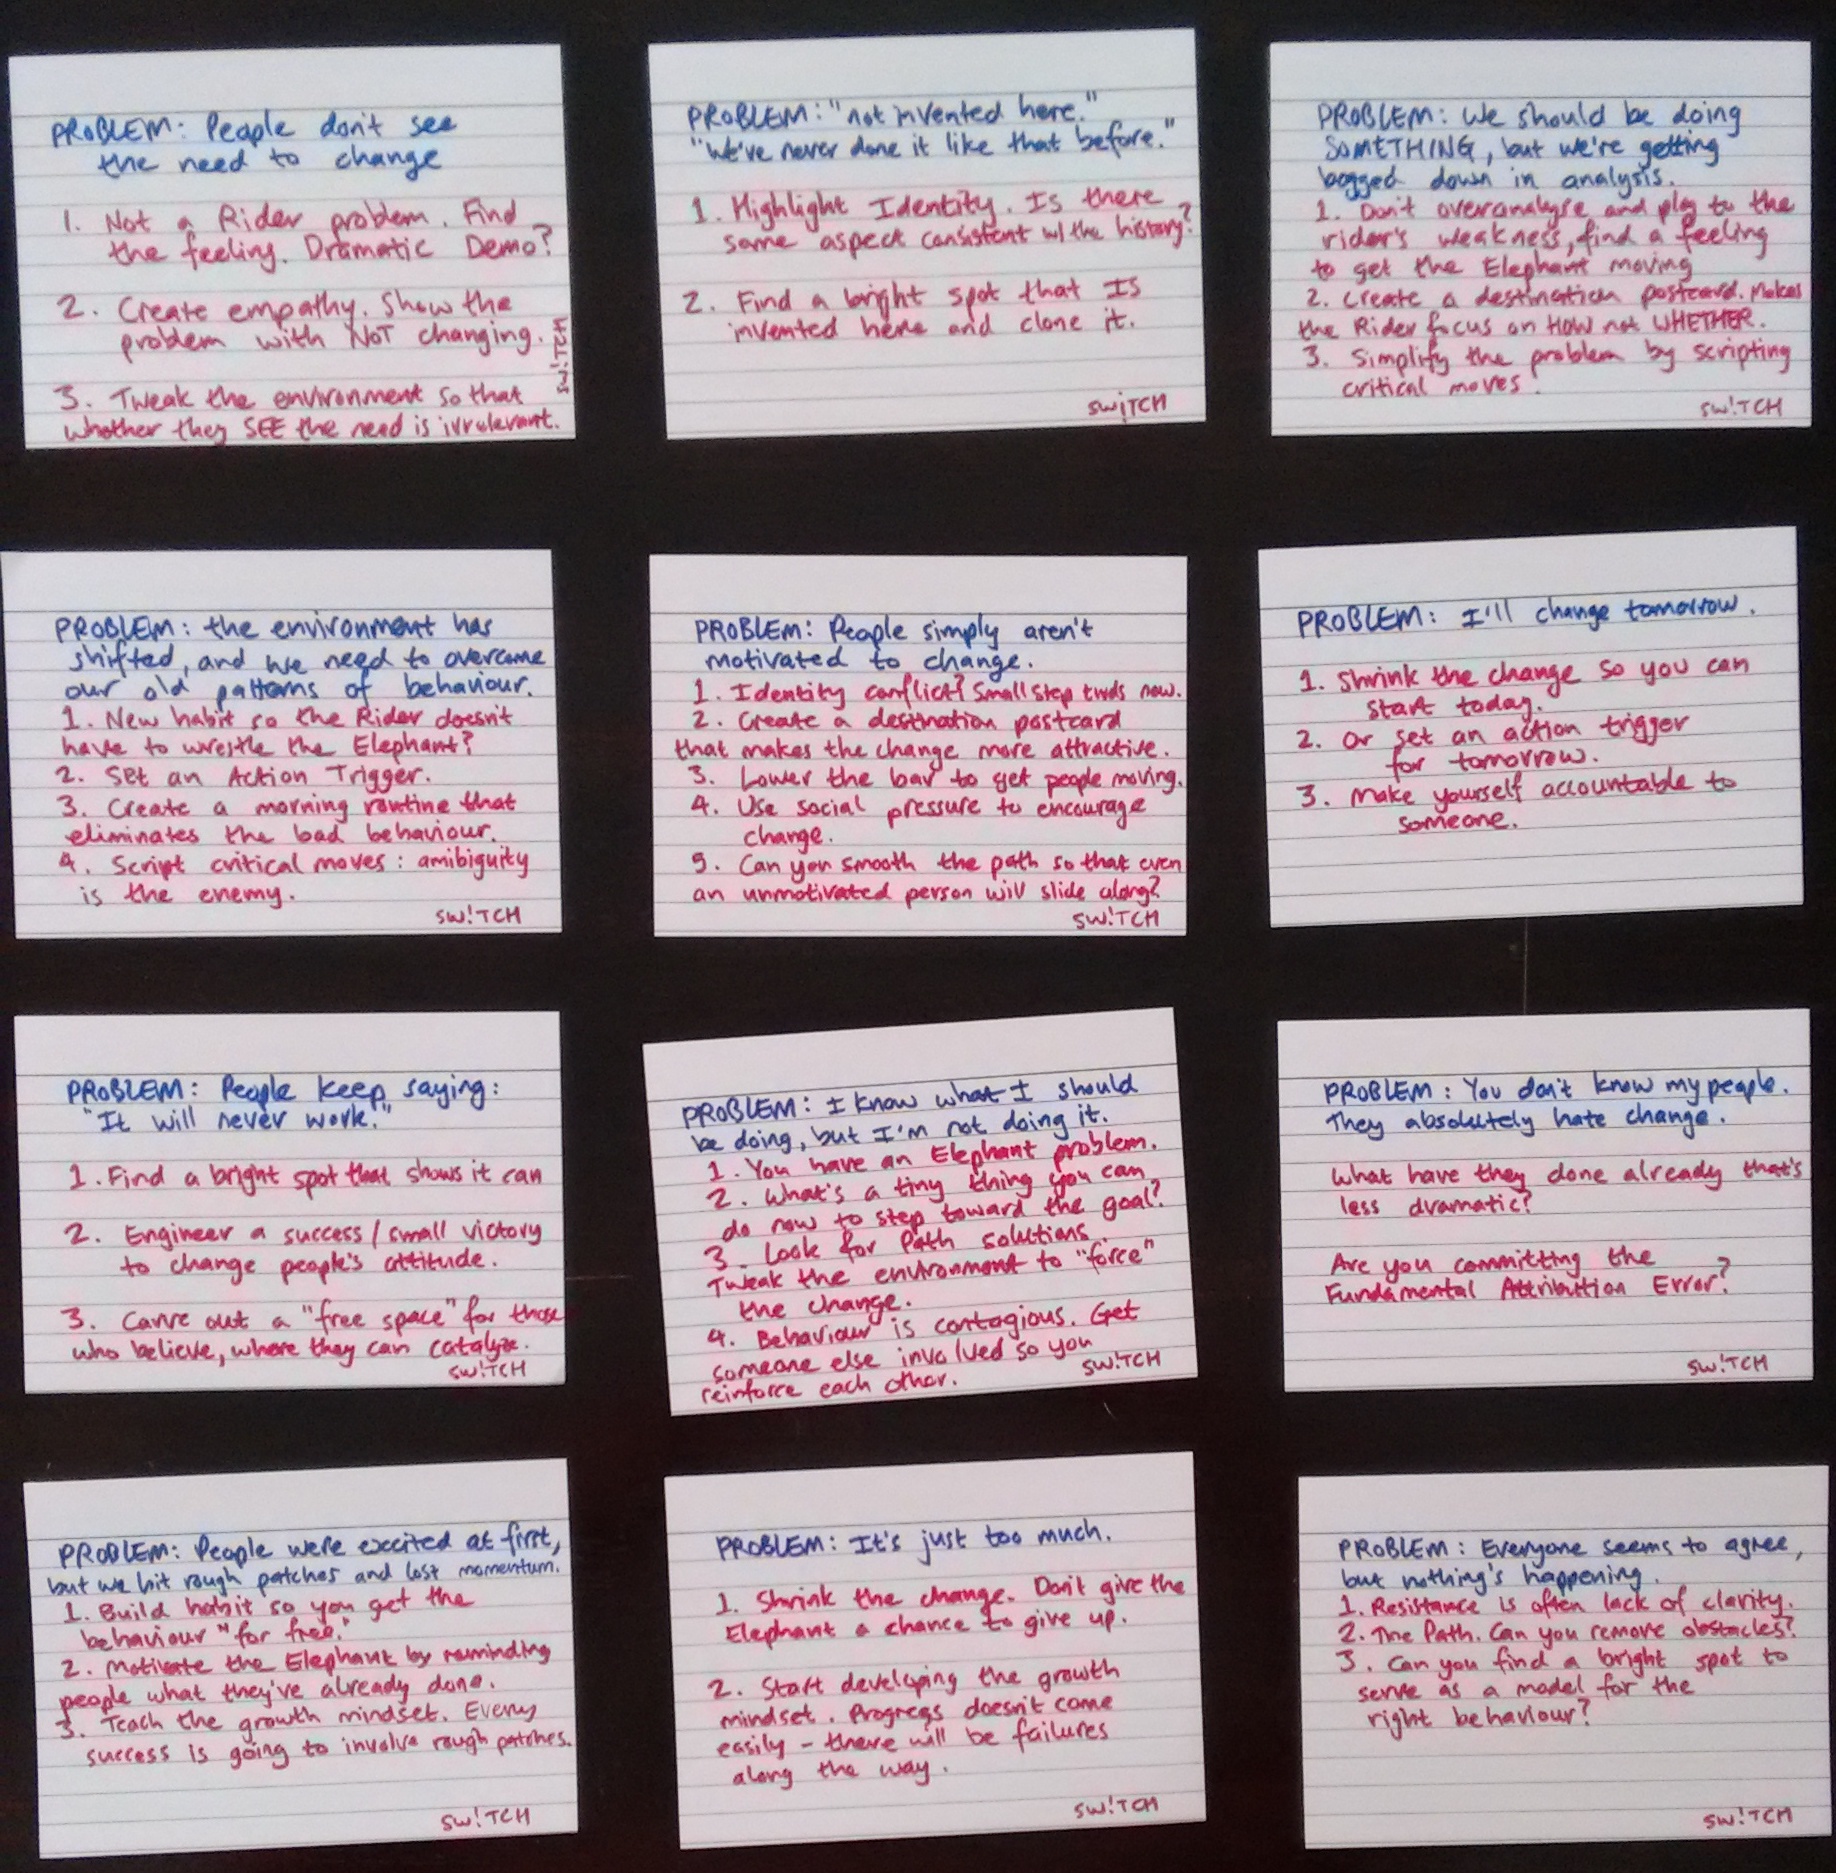 PROBLEM: People don't see
the need to change
1. Not a Rider problem. Find
the feeling. Dramatic Demo?
2. Create empathy. Show the
problem with NOT changing.
3. Tweak the environment so that
whether they SEE the need is irrelevant.
SW!TCH
PROBLEM: "not invented here."
"We've never done it like that before."
1. Highlight Identity. Is there
some aspect consistent w/ the history?
2. Find a bright spot that IS
invented here and clone it.
SW!TCH
PROBLEM: We should be doing
SOMETHING, but we're getting
bogged down in analysis.
1. Don't overanalyse and play to the
rider's weakness, find a feeling
to get the Elephant moving
2. Create a destination postcard. Makes
the Rider focus on HOW not WHETHER.
3. Simplify the problem by scripting
critical moves.
SW!TCH
PROBLEM: the environment has
shifted, and we need to overcome
our old patterns of behaviour.
1. New habit so the Rider doesn't
have to wrestle the Elephant?
2. Set an Action Trigger.
3. Create a morning routine that
eliminates the bad behaviour.
4. Script critical moves: amibiguity
is the enemy.
SW!TCH
PROBLEM: People simply aren't
motivated to change.
1. Identity conflict? Small step twds now.
2. Create a destination postcard
that makes the change more attractive.
3. Lower the bar to get people moving.
4. Use social pressure to encourage
change.
5. Can you smooth the path so that even
an unmotivated person will slide along?
SW!TCH
PROBLEM: I'll change tomorrow.
1. Shrink the change so you can
start today.
2. Or set an action trigger
for tomorrow.
3. Make yourself accountable to
someone.
PROBLEM: People keep saying:
"It will never work."
1. Find a bright spot that shows it can
2. Engineer a success / small victory
to change people's attitude.
3. Carve out a "free space" for those
who believe, where they can catalyze.
SW!TCH
PROBLEM: I know what I should
be doing, but I'm not doing it.
1. You have an Elephant problem.
2. What's a tiny thing you can
do now to step toward the goal?
3. Look for Path solutions
Tweak the environment to "force"
the change.
4. Behaviour is contagious. Get
someone else involved so you
reinforce each other.
SW!TCH
PROBLEM: You don't know my people.
They absolutely hate change.
What have they done already that's
less dramatic?
Are you committing the
Fundamental Attribution Error?
SW!TCH
PROBLEM: People were excited at first,
but we hit rough patches and lost momentum.
1. Build habit so you get the
behaviour "for free."
2. Motivate the Elephant by reminding
people what they've already done.
3. Teach the growth mindset. Every
success is going to involve rough patches.
SW!TCH
PROBLEM: It's just too much.
1. Shrink the change. Don't give the
Elephant a chance to give up.
2. Start developing the growth
mindset. Progress doesn't come
easily – there will be failures
along the way.
SW!TCH
PROBLEM: Everyone seems to agree,
but nothing's happening.
1. Resistance is often lack of clarity.
2. The Path. Can you remove obstacles?
3. Can you find a bright spot to
serve as a model for the
right behaviour?
SW!TCH